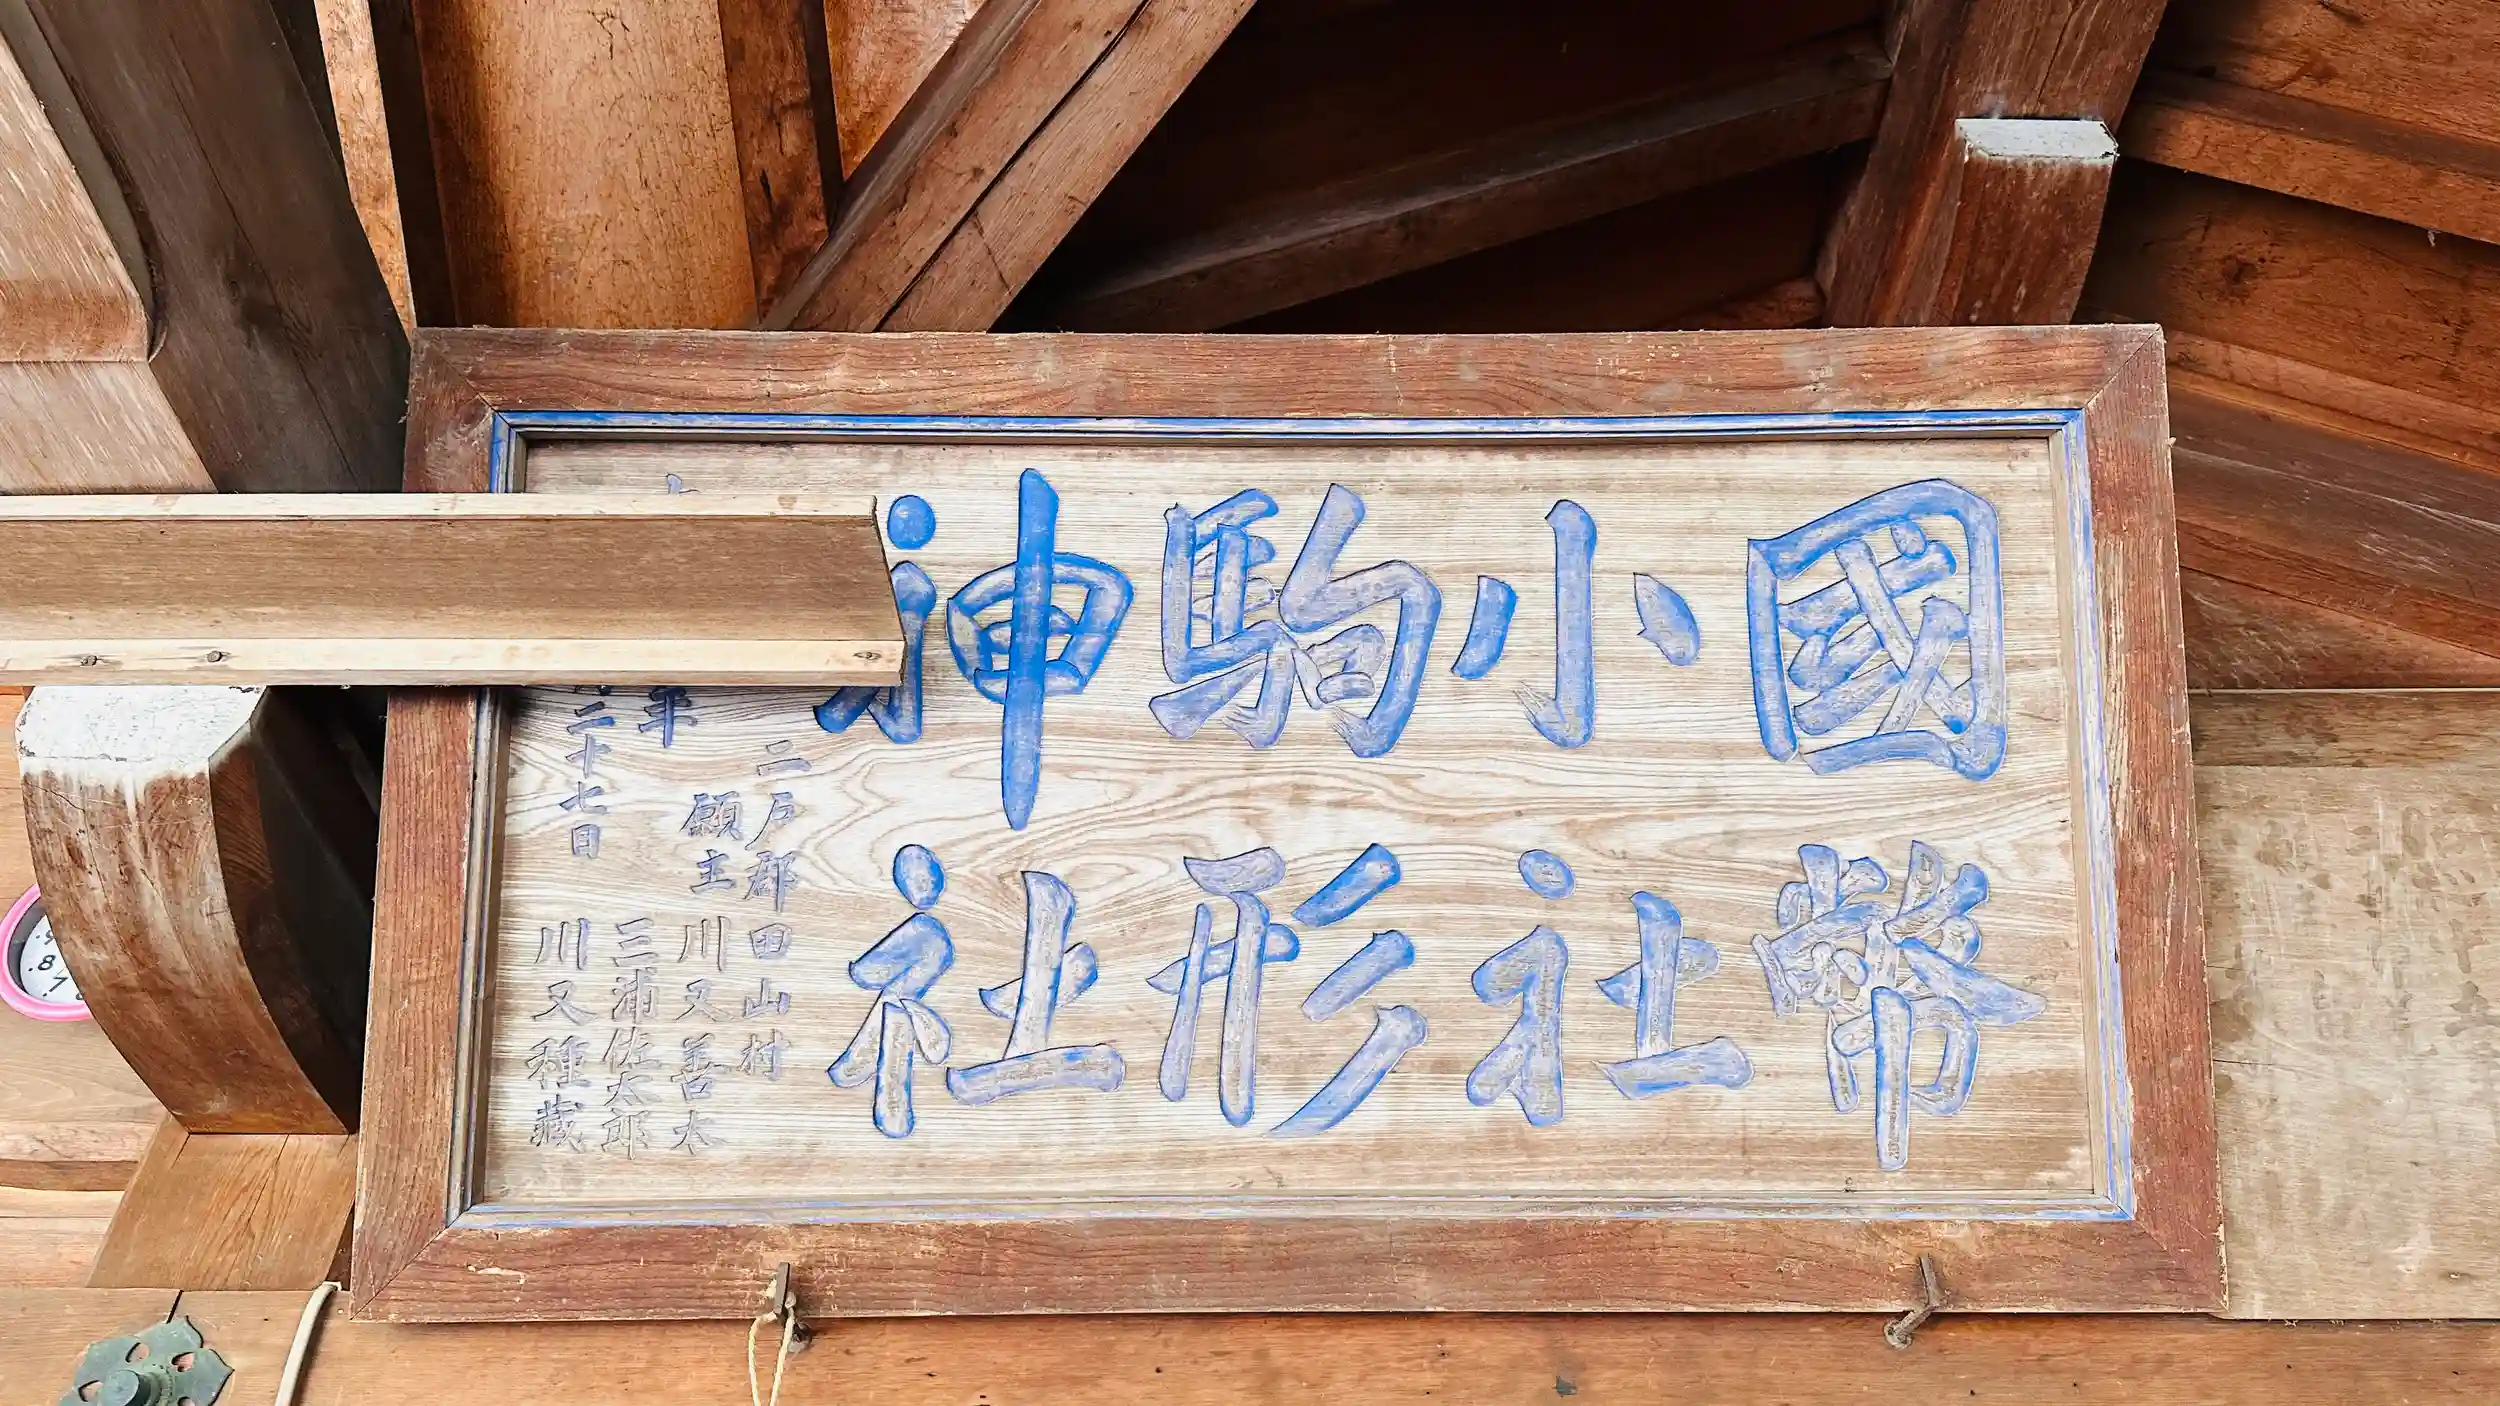 國幣
小社
駒形
神社
年
二十七日
二戸郡田山村
願主 川又善太
三浦佐太郎
川又種蔵
8
7